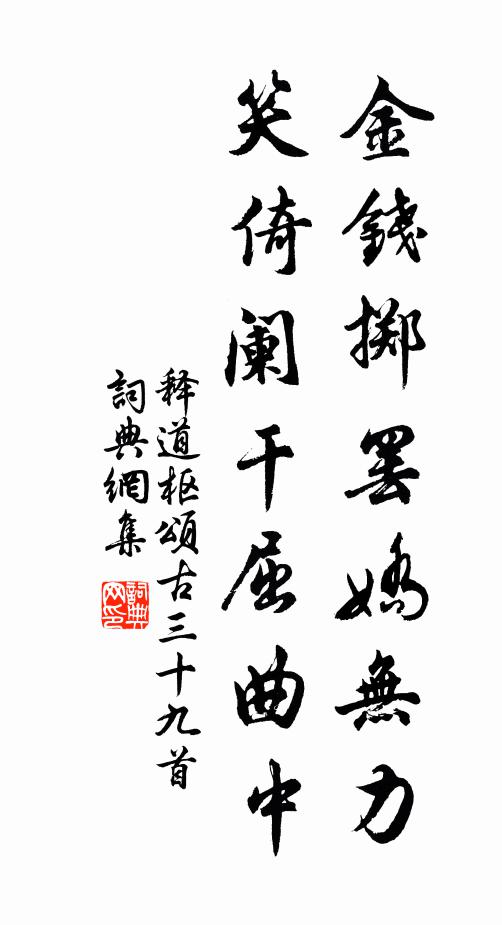 金錢擲罷嬌無力
笑倚阑干屈曲中
释道枢頌古三十九首
詞典網集
詞典网印